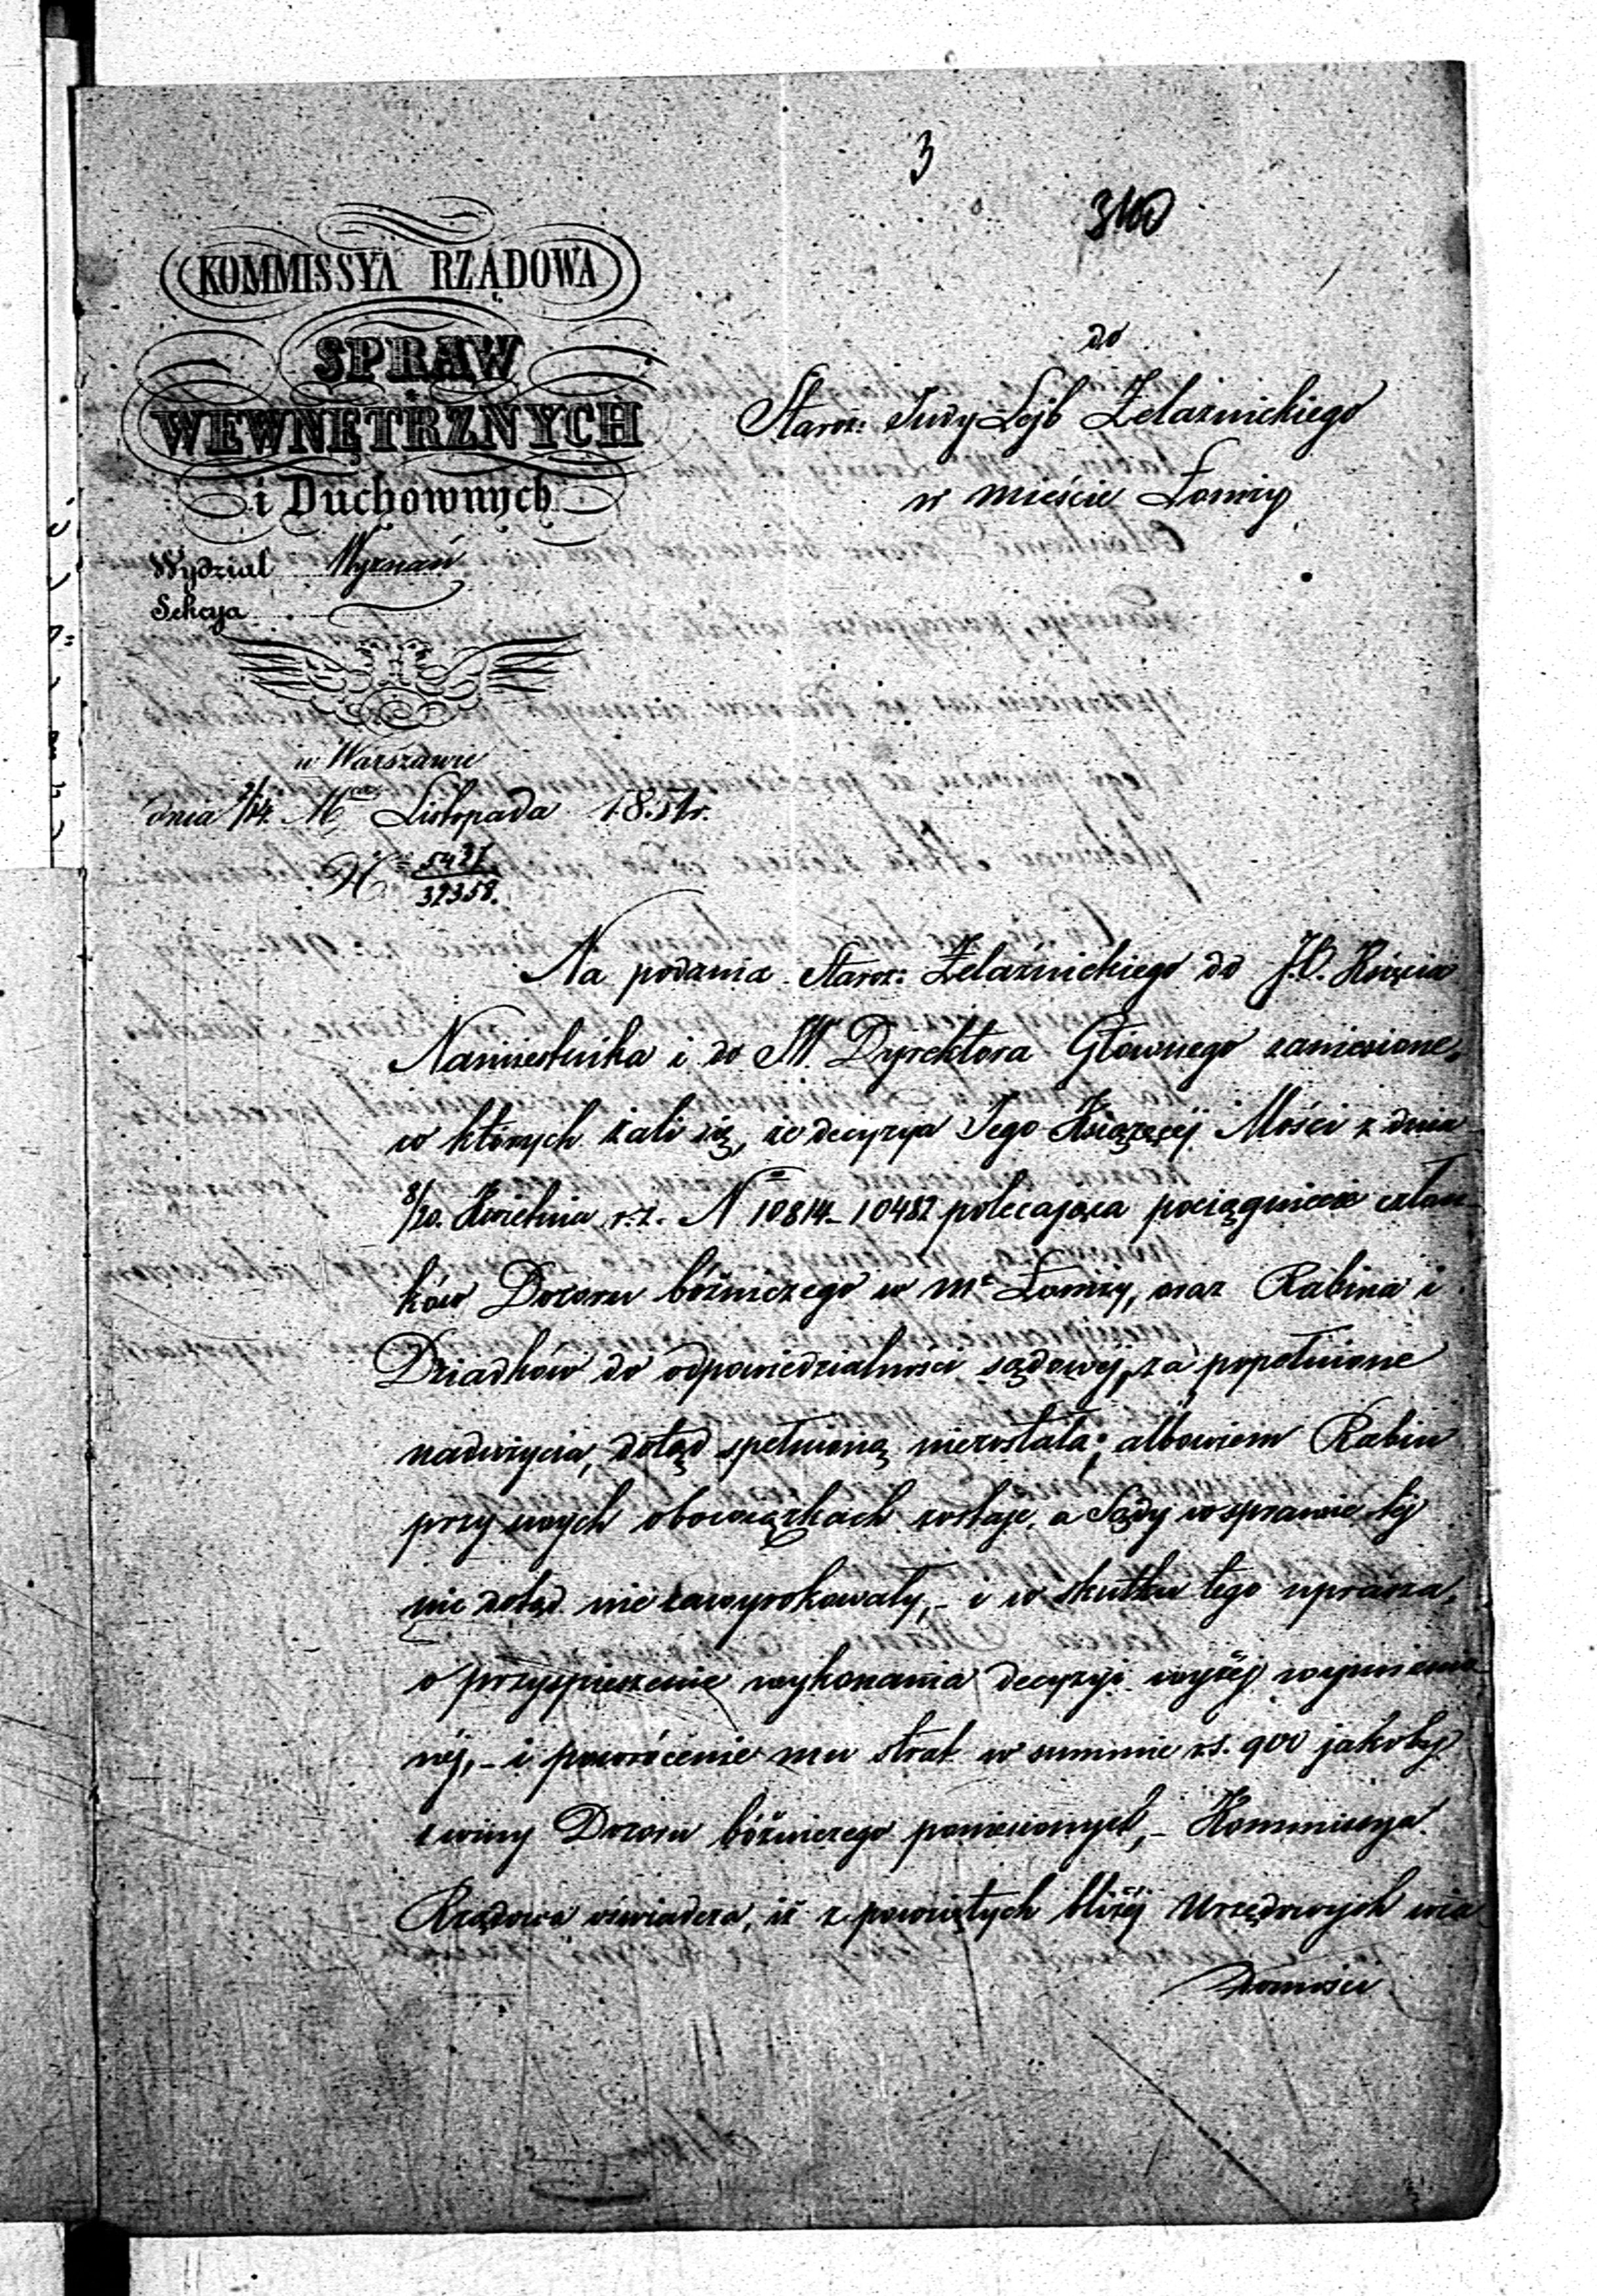 3
KOMMISSYA RZĄDOWA
SPRAW
WEWNĘTRZNYCH
i Duchownych
Wydział Wyznań
Sekcya
w Warszawie
dnia 2/14 Mca Listopada 1851r.
N 5431
do
Staroz: Judy Lejb Żelaźnickiego
w mieście Łomży
Na podania Staroz: Żelaźnickiego do J.O. Księcia
Namiestnika i do JW. Dyrektora Głównego zaniesione,
w których żali się, że decyzya Jego Książęcej Mości z dnia
8/20. Kwietnia r.b. N 10814–10482 polecająca pociągnięcie człon-
ków Dozoru bóżniczego w Mie Łomży, oraz Rabina i
Dziadków do odpowiedzialności sądowej, za popełnione
nadużycia, dotąd spełnioną niezostała; albowiem Rabin
przy swych obowiązkach zostaje, a Sądy w sprawie tej
nic dotąd nie zawyrokowały, – i w skutku tego uprasza,
o przyspieszenie wykonania decyzyi wyżej wymienio
néj, – i powrócenie mu strat w summie rs. 900 jakoby
z winy Dozoru bóżniczego poniesionych, – Kommissya
Rządowa oświadcza, iż z powziętych bliżej Urzędowych wia
domości